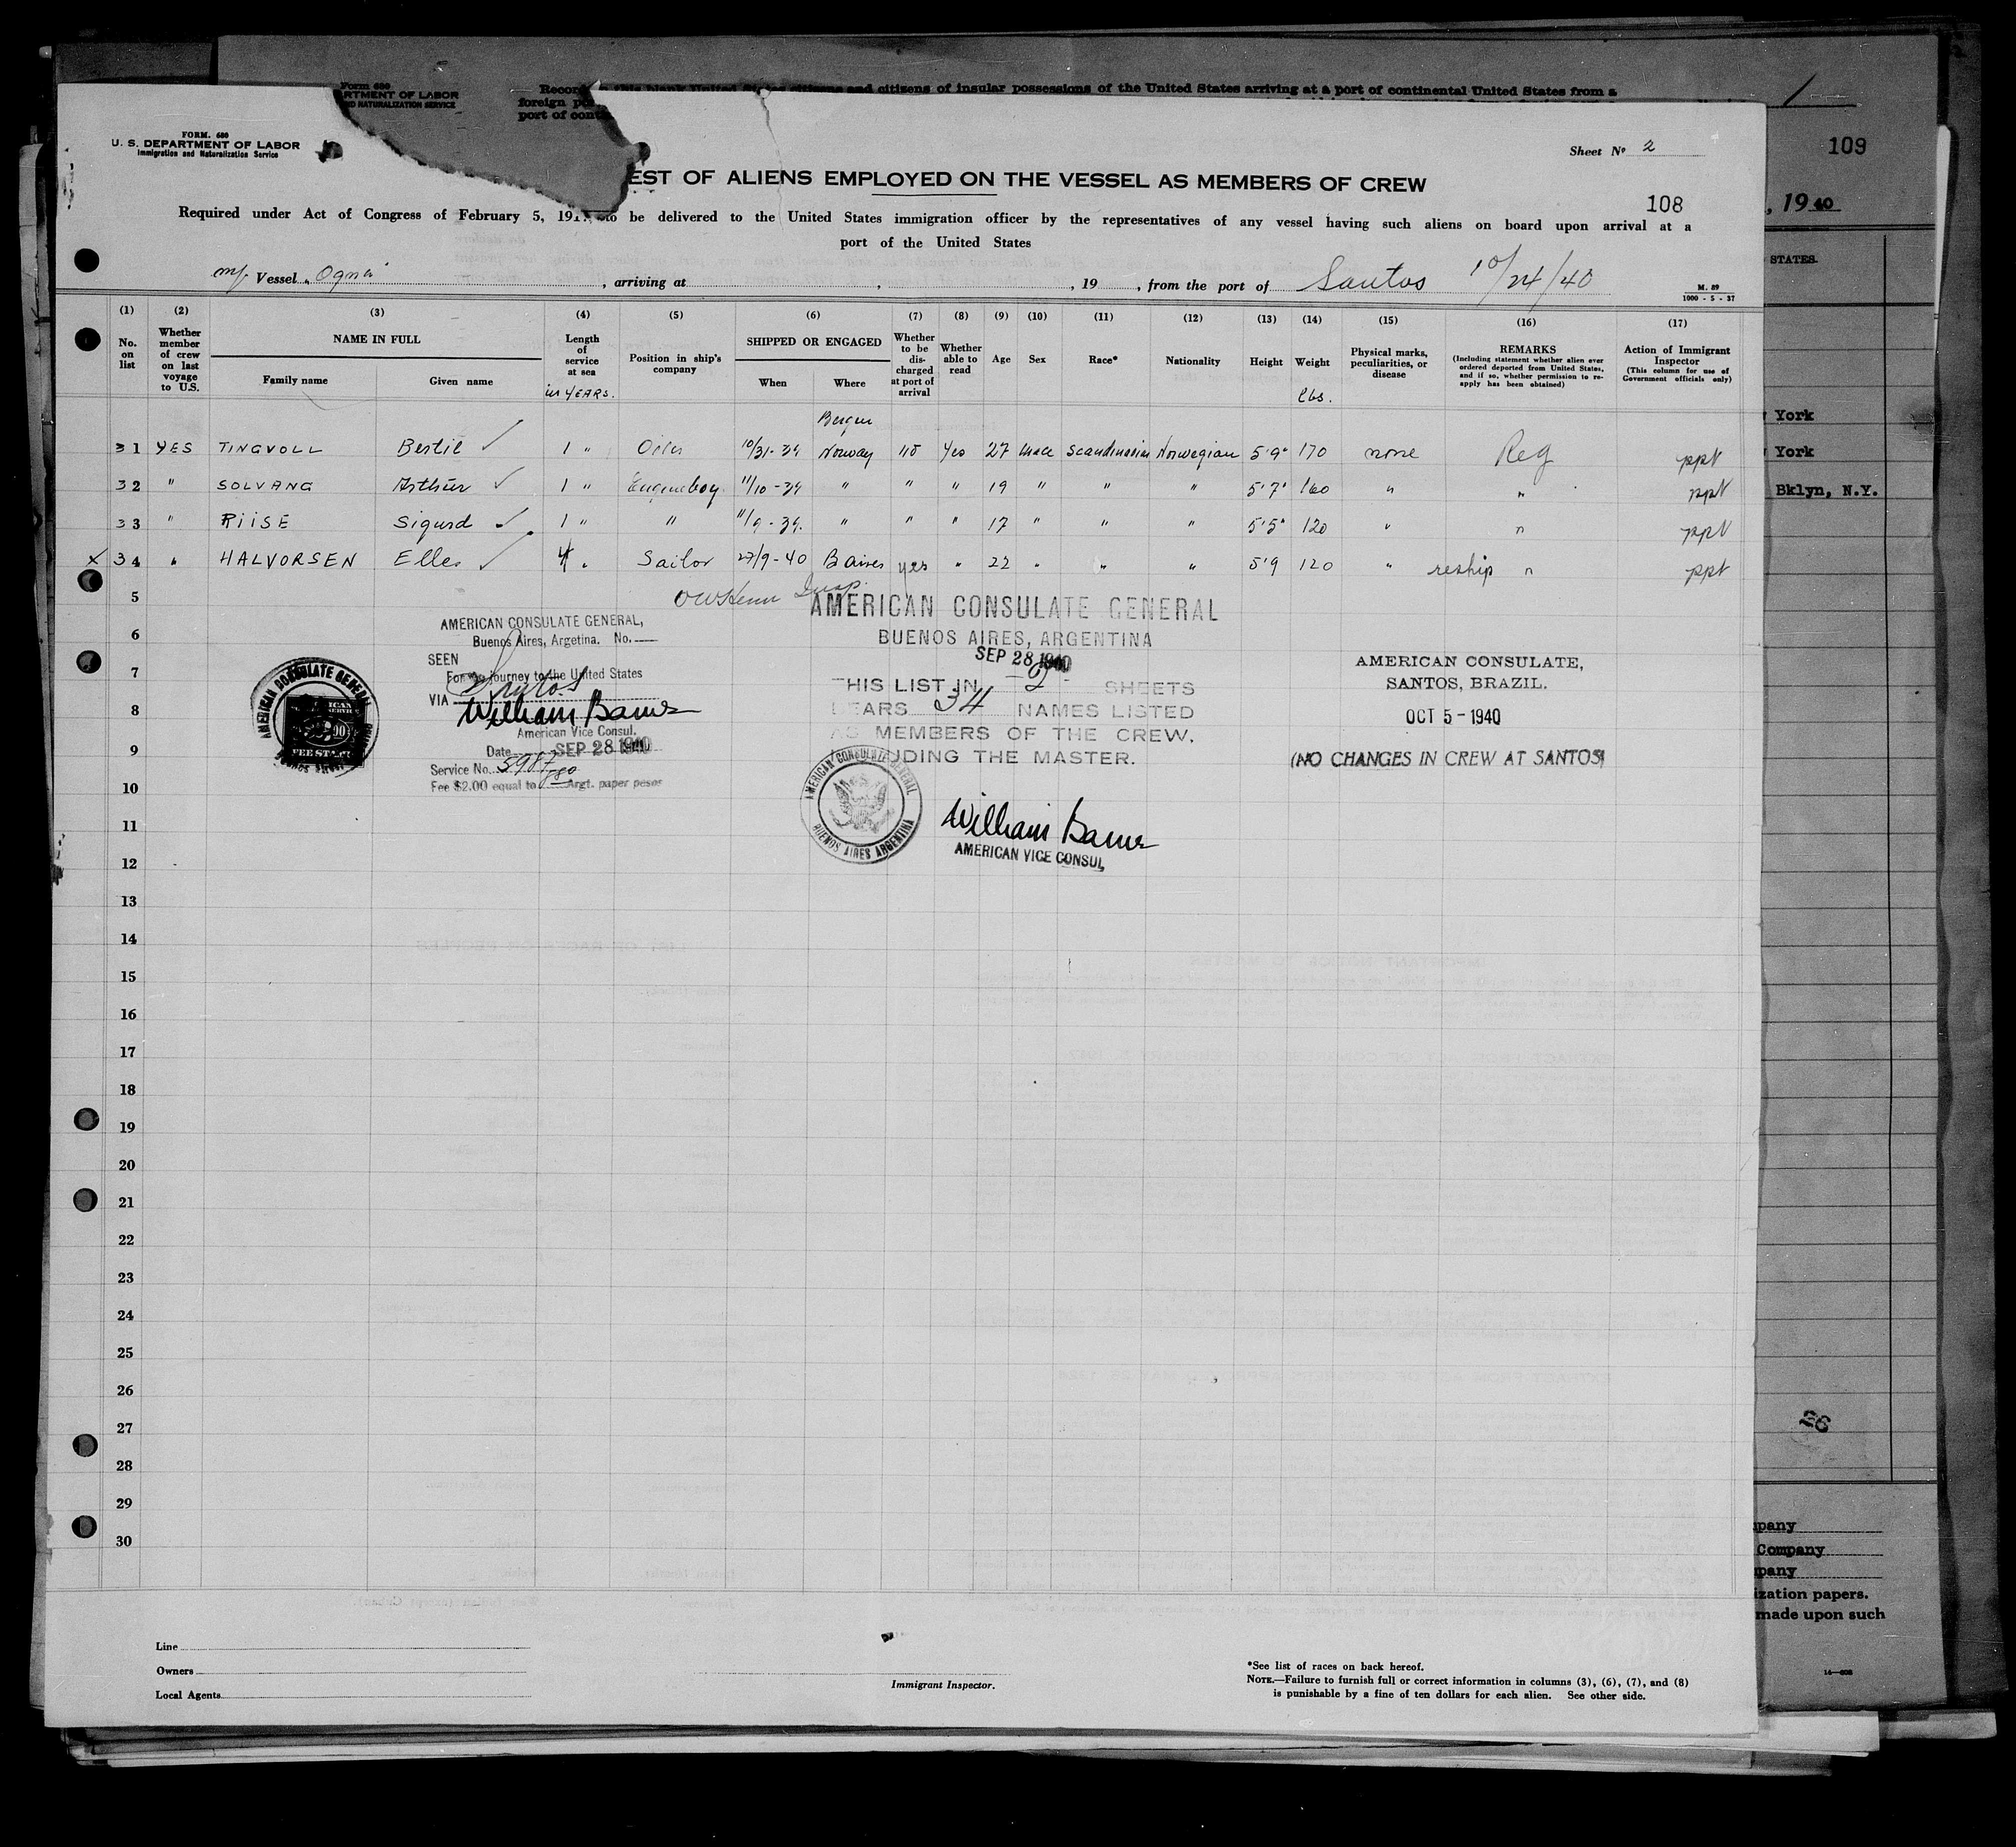 Form 680
RTMENT OF LABOR
ND NATURALIZATION SERVICE
Record this blank United States citizens and citizens of insular possessions of the United States arriving at a port of continental United States from a
foreign
port of
FORM. 680
U. S. DEPARTMENT OF LABOR
Immigration and Naturalization Service
Sheet No 2
109
EST OF ALIENS EMPLOYED ON THE VESSEL AS MEMBERS OF CREW
108
, 19 40
Required under Act of Congress of February 5, 191 to be delivered to the United States immigration officer by the representatives of any vessel having such aliens on board upon arrival at a
port of the United States
STATES.
m/s Vessel "Ogna" , arriving at , 19 , from the port of Santos 10/24/40
M. 89
1000 - 5 - 37
(1) (2) (3) (4) (5) (6) (7) (8) (9) (10) (11) (12) (13) (14) (15) (16) (17)
No. on list
Whether member of crew on last voyage to U.S.
NAME IN FULL
Family name Given name
Length of service at sea
in YEARS.
Position in ship's company
SHIPPED OR ENGAGED
When Where
Whether to be discharged at port of arrival
Whether able to read
Age
Sex
Race*
Nationality
Height
Weight
lbs.
Physical marks, peculiarities, or disease
REMARKS
(Including statement whether alien ever ordered deported from United States, and if so, whether permission to reapply has been obtained)
Action of Immigrant Inspector
(This column for use of Government officials only)
York
Bergen
31 YES TINGVOLL Bertil ✓ 1 " Oiler 10/31-39 Norway no Yes 27 male Scandinavian Norwegian 5'9" 170 none Reg ppt
York
32 " SOLVANG Arthur ✓ 1 " Engineboy 11/10-39 " " " 19 " " " 5'7" 160 " " ppt
Bklyn, N.Y.
33 " RIISE Sigurd ✓ 1 " " 11/9-39. " " " 17 " " " 5'5" 120 " " ppt
x 34 " HALVORSEN Elles ✓ 4 " Sailor 27/9-40 BAires yes " 22 " " " 5'9 120 " reship " ppt
5
Insp.
6
7
8
9
10
11
12
13
14
15
16
17
18
19
20
21
22
23
24
25
26
27
28
29
30
AMERICAN CONSULATE GENERAL,
Buenos Aires, Argetina. No.
SEEN
For the journey to the United States
VIA Santos
William Barnes
American Vice Consul.
Date SEP 28 1940
Service No. 5987
Fee $2.00 equal to Argt. paper pesos
AMERICAN CONSULATE GENERAL
BUENOS AIRES
FEE STAMP
AMERICAN CONSULATE GENERAL
BUENOS AIRES, ARGENTINA
SEP 28 1940
THIS LIST IN -2- SHEETS
BEARS 34 NAMES LISTED
AS MEMBERS OF THE CREW,
UDING THE MASTER.
AMERICAN CONSULATE GENERAL
BUENOS AIRES ARGENTINA
William Barnes
AMERICAN VICE CONSUL
AMERICAN CONSULATE,
SANTOS, BRAZIL.
OCT 5 - 1940
(NO CHANGES IN CREW AT SANTOS)
26
pany
Company
pany
ization papers.
made upon such
Line
Owners
Local Agents
Immigrant Inspector.
*See list of races on back hereof.
NOTE.—Failure to furnish full or correct information in columns (3), (6), (7), and (8)
is punishable by a fine of ten dollars for each alien. See other side.